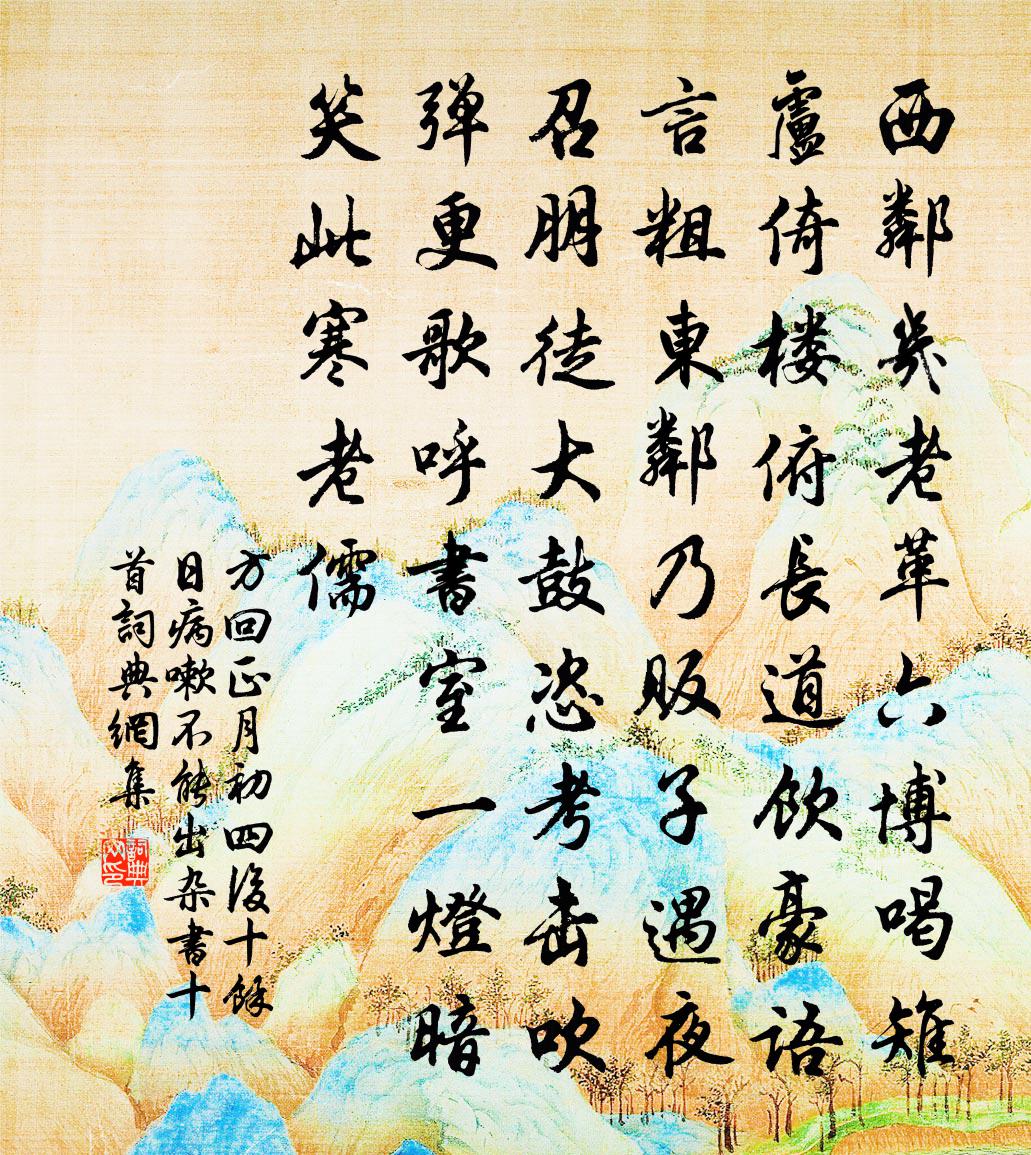 西鄰幾老革六博喝雉
盧倚楼俯長道飲豪語
言粗東鄰乃販子遇夜
召朋徒大鼓恣考击吹
弹更歌呼書室一燈暗
笑此寒老儒
方回正月初四後十餘
日病嗽不能出杂書十
首詞典網集
詞典網印